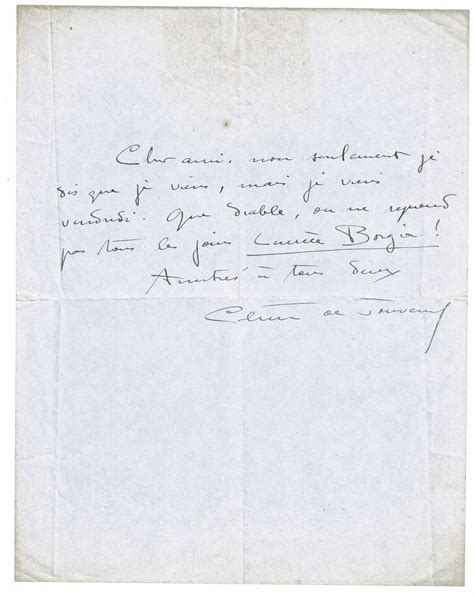 Cher ami, non seulement je
dis que je viens, mais je viens
vendredi. Que diable, on ne reprend
pas tous les jours Lucrèce Borgia !
Amitiés à tous deux
Colette de Jouvenel